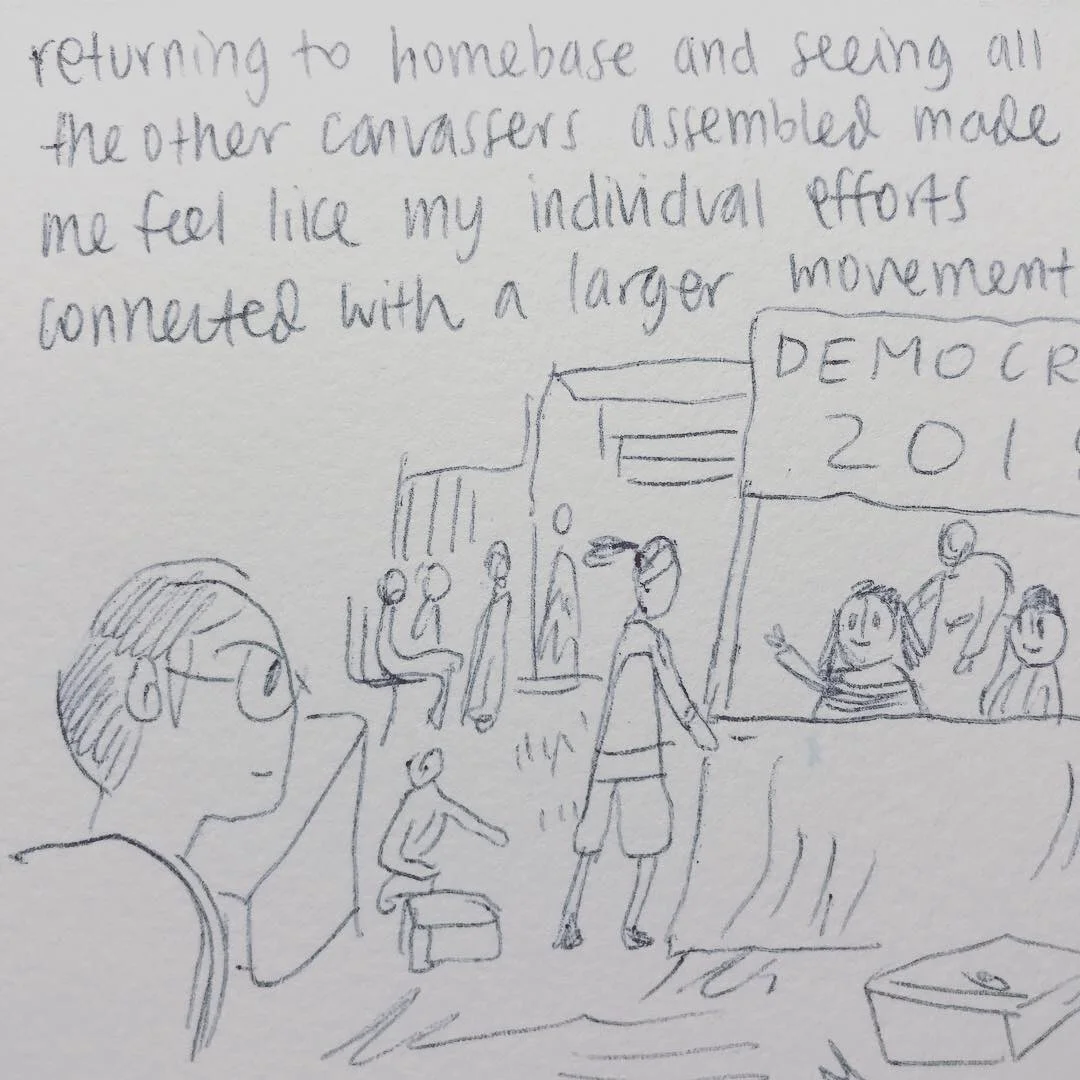 returning to homebase and seeing all
the other canvassers assembled made
me feel like my individual efforts
connected with a larger movement
DEMOCR
201